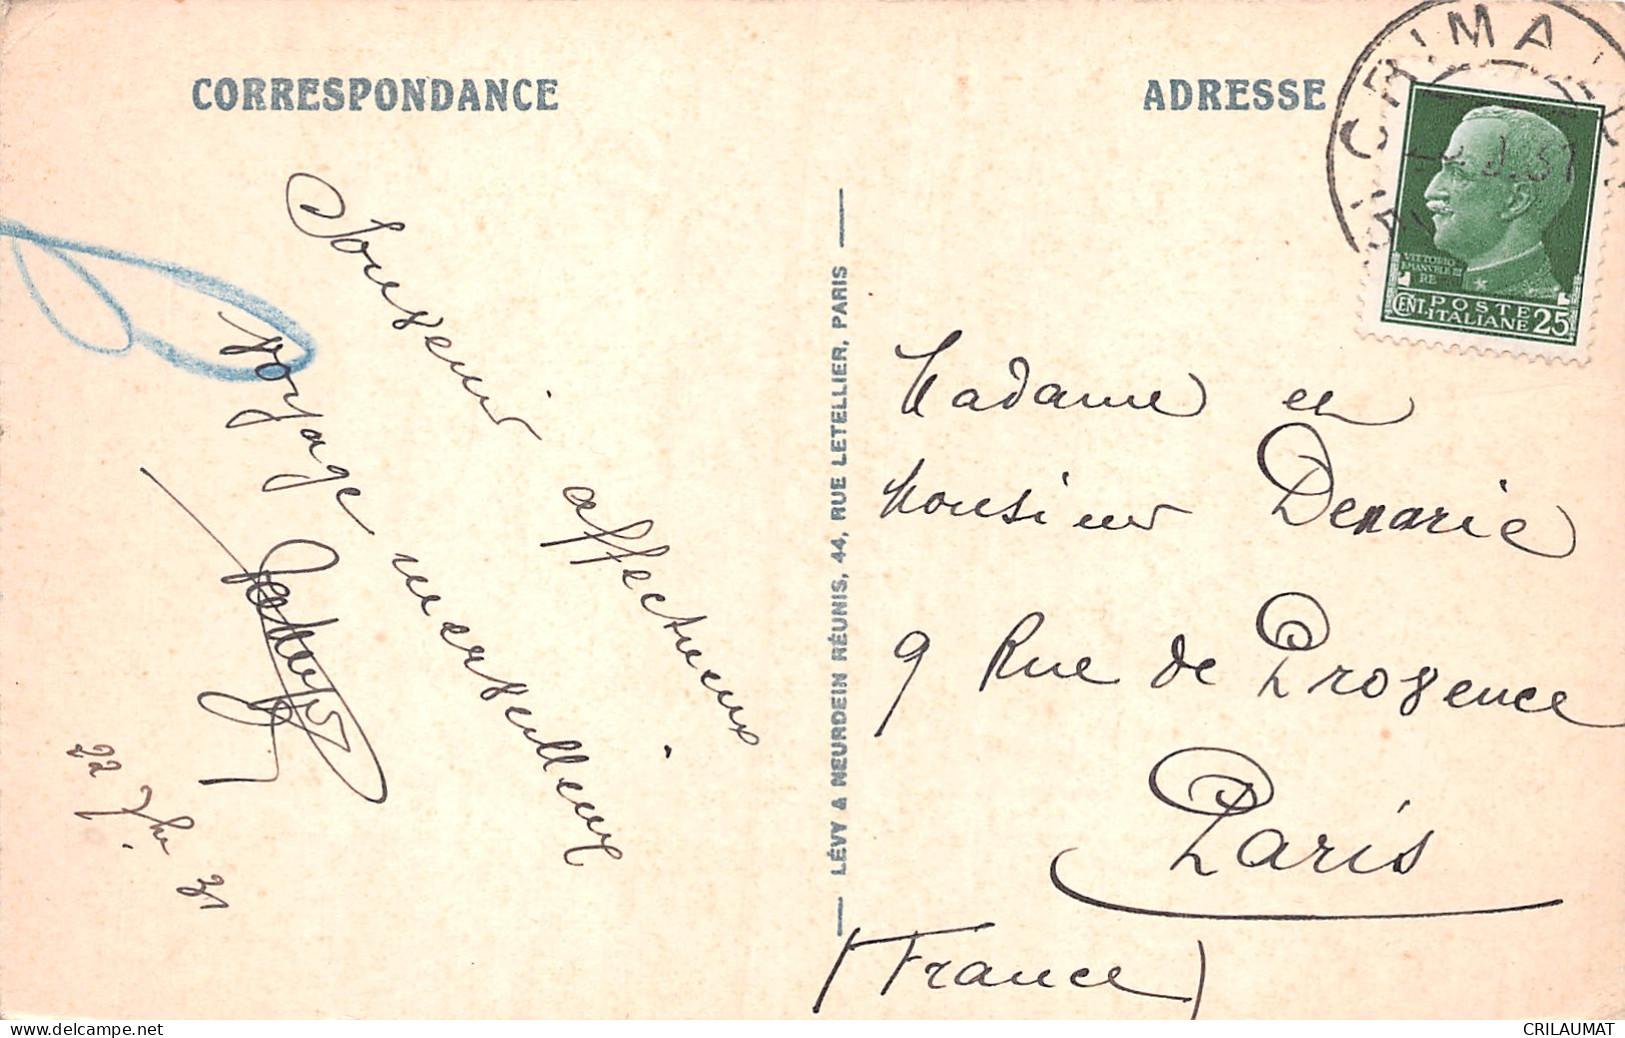 CORRESPONDANCE
ADRESSE
GRIMAL
VITTORIO
EMANUELE III
RE
CENT. POSTE
ITALIANE 25
Souvenir affectueux
voyage merveilleux
22 7bre 31
LÉVY & NEURDEIN RÉUNIS, 44, RUE LETELLIER, PARIS
Madame et
Monsieur Denarie
9 Rue de Provence
Paris
(France)
CRILAUMAT